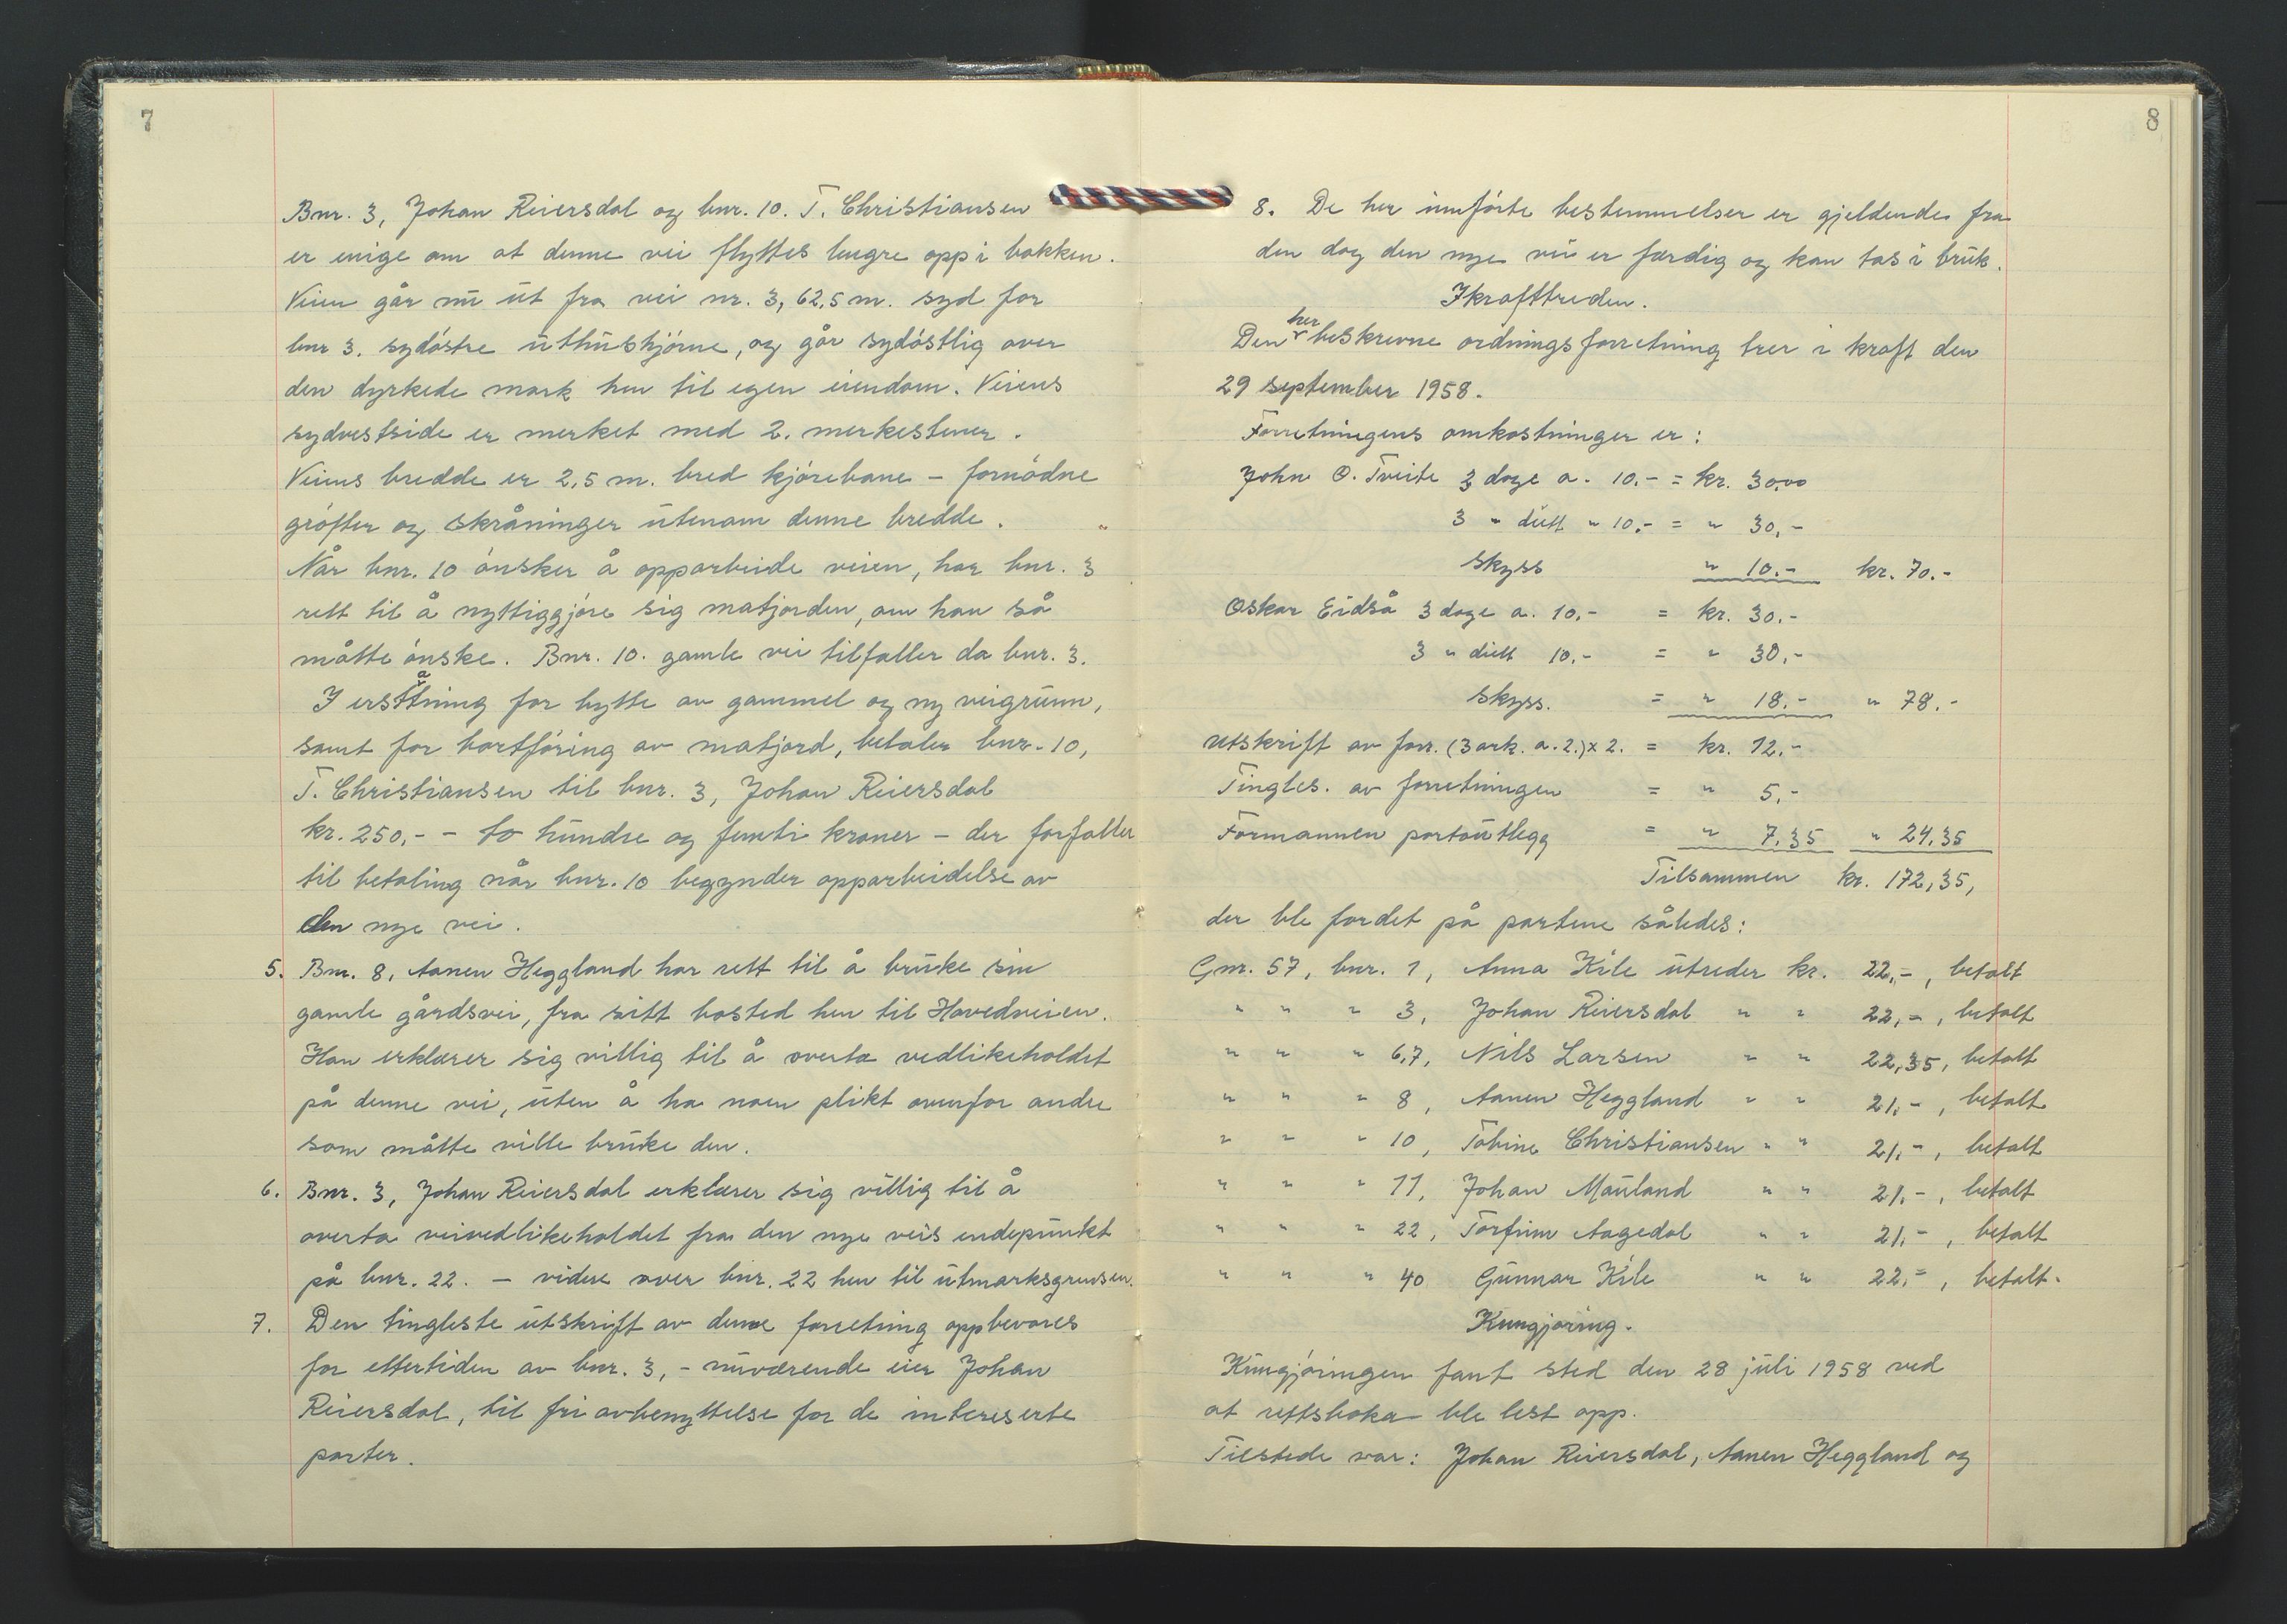 7
Bnr. 3, Johan Reiersdal og bnr. 10. T. Christiansen
er enige om at denne vei flyttes lengre opp i bakken.
Veien går nu ut fra vei nr. 3, 62,5 m. syd for
bnr 3. sydöstre uthushjörne, og går sydöstlig over
den dyrkede mark hen til egen eiendom. Veiens
sydvestside er merket med 2. merkestener.
Veiens bredde er 2,5 m. bred kjörebane – fornödne
gröfter og skråninger utenom denne bredde.
Når bnr. 10 önsker å opparbeide veien, har bnr. 3
rett til å nyttiggjöre sig matjorden, om han så
måtte önske. Bnr. 10. gamle vei tilfaller da bnr. 3.
I ersattning for bytte av gammel og ny veigrunn,
samt for bortföring av matjord, betaler bnr. 10,
T. Christiansen til bnr. 3, Johan Reiersdal
kr. 250,- – to hundre og femti kroner – der forfaller
til betaling når bnr. 10 begynder opparbeidelse av
den nye vei.
5. Bnr. 8, Aanen Heggland har rett til å bruke sin
gamle gårdsvei, fra sitt bosted hen til Hovedveien.
Han erklærer sig villig til å overta vedlikeholdet
på denne vei, uten å ha noen plikt overfor andre
som måtte ville bruke den.
6. Bnr. 3, Johan Reiersdal erklærer sig villig til å
overta veivedlikeholdet fra den nye veis endepunkt
på bnr. 22. – videre over bnr. 22 hen til utmarksgrensen.
7. Den tingleste utskrift av denne forretning oppbevares
for ettertiden av bnr. 3, – nuværende eier Johan
Reiersdal, til fri avbenyttelse for de intereserte
parter.
8
8. De her innförte bestemmelser er gjeldende fra
den dag den nye vei er færdig og kan tas i bruk.
Ikrafttreden.
Den her beskrevne ordningsforretning trer i kraft den
29 september 1958.
Forretningens omkostninger er:
John O. Tveite 3 dage a. 10.- = kr. 30.00
3 " diett " 10.- = " 30,-
Skyss " 10.- kr. 70.-
Oskar Eidså 3 dage a. 10.- = kr. 30.-
3 " diett 10.- = " 30.-
Skyss. = " 18.- " 78.-
Utskrift av forr. (3 ark. a. 2.) x 2. = kr. 12.-
Tingles. av forretningen = " 5.-
Formannen portoutlegg = " 7.35 " 24,35
Tilsammen kr. 172,35,
der ble fordet på partene således:
Gnr. 57, bnr. 1, Anna Kile utreder kr. 22,-, betalt
" " " 3, Johan Reiersdal " " 22,-, betalt
" " " 6,7, Nils Larsen " " 22,35, betalt
" " " 8, Aanen Heggland " " 21,-, betalt
" " " 10, Tobine Christiansen " " 21,-, betalt
" " " 11, Johan Mauland " " 21,-, betalt
" " " 22, Torfinn Aagedal " " 21,-, betalt
" " " 40 Gunnar Kile " " 22,-, betalt.
Kungjöring.
Kungjöringen fant sted den 28 juli 1958 ved
at rettsboka ble lest opp.
Tilstede var: Johan Reiersdal, Aanen Heggland og